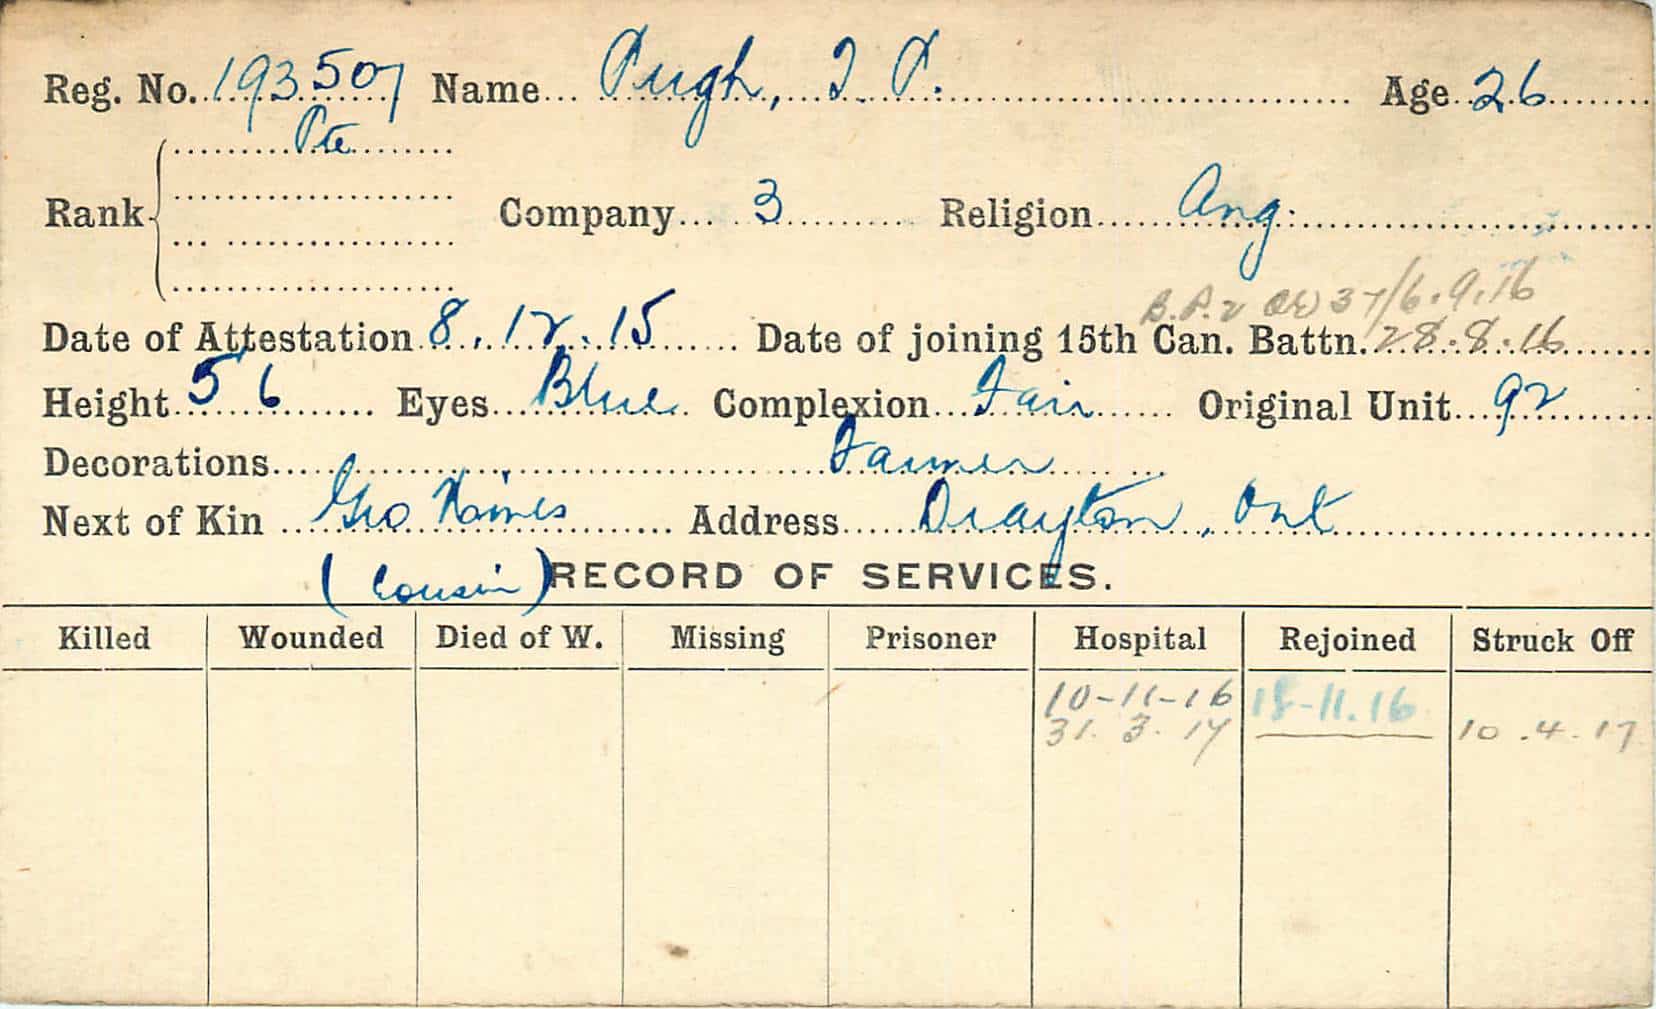 Reg. No. 193507 Name Pugh, T. P. Age 26
Pte
Rank Company 3 Religion Ang:
37/6.9.16
Date of Attestation 8.12.15 Date of joining 15th Can. Battn. 28.8.16
Height 5 6 Eyes Blue Complexion Fair Original Unit 92
Decorations Farmer
Next of Kin Geo Address Drayton, Ont
(Cousin) RECORD OF SERVICES.
Killed Wounded Died of W. Missing Prisoner Hospital Rejoined Struck Off
10-11-16 18-11.16
31. 3. 17 10.4.17